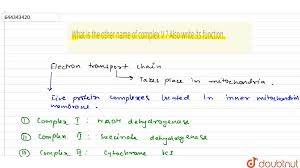 644343420
What is the other name of complex V ? Also write its function.
Electron transport chain
Takes place in mitochondria.
Five protein complexes located in inner mitochondria
membrane.
① Complex I : NADH dehydrogenase
② Complex II : Succinate dehydrogenase
Complex III : Cytochrome bc1
doubtnut